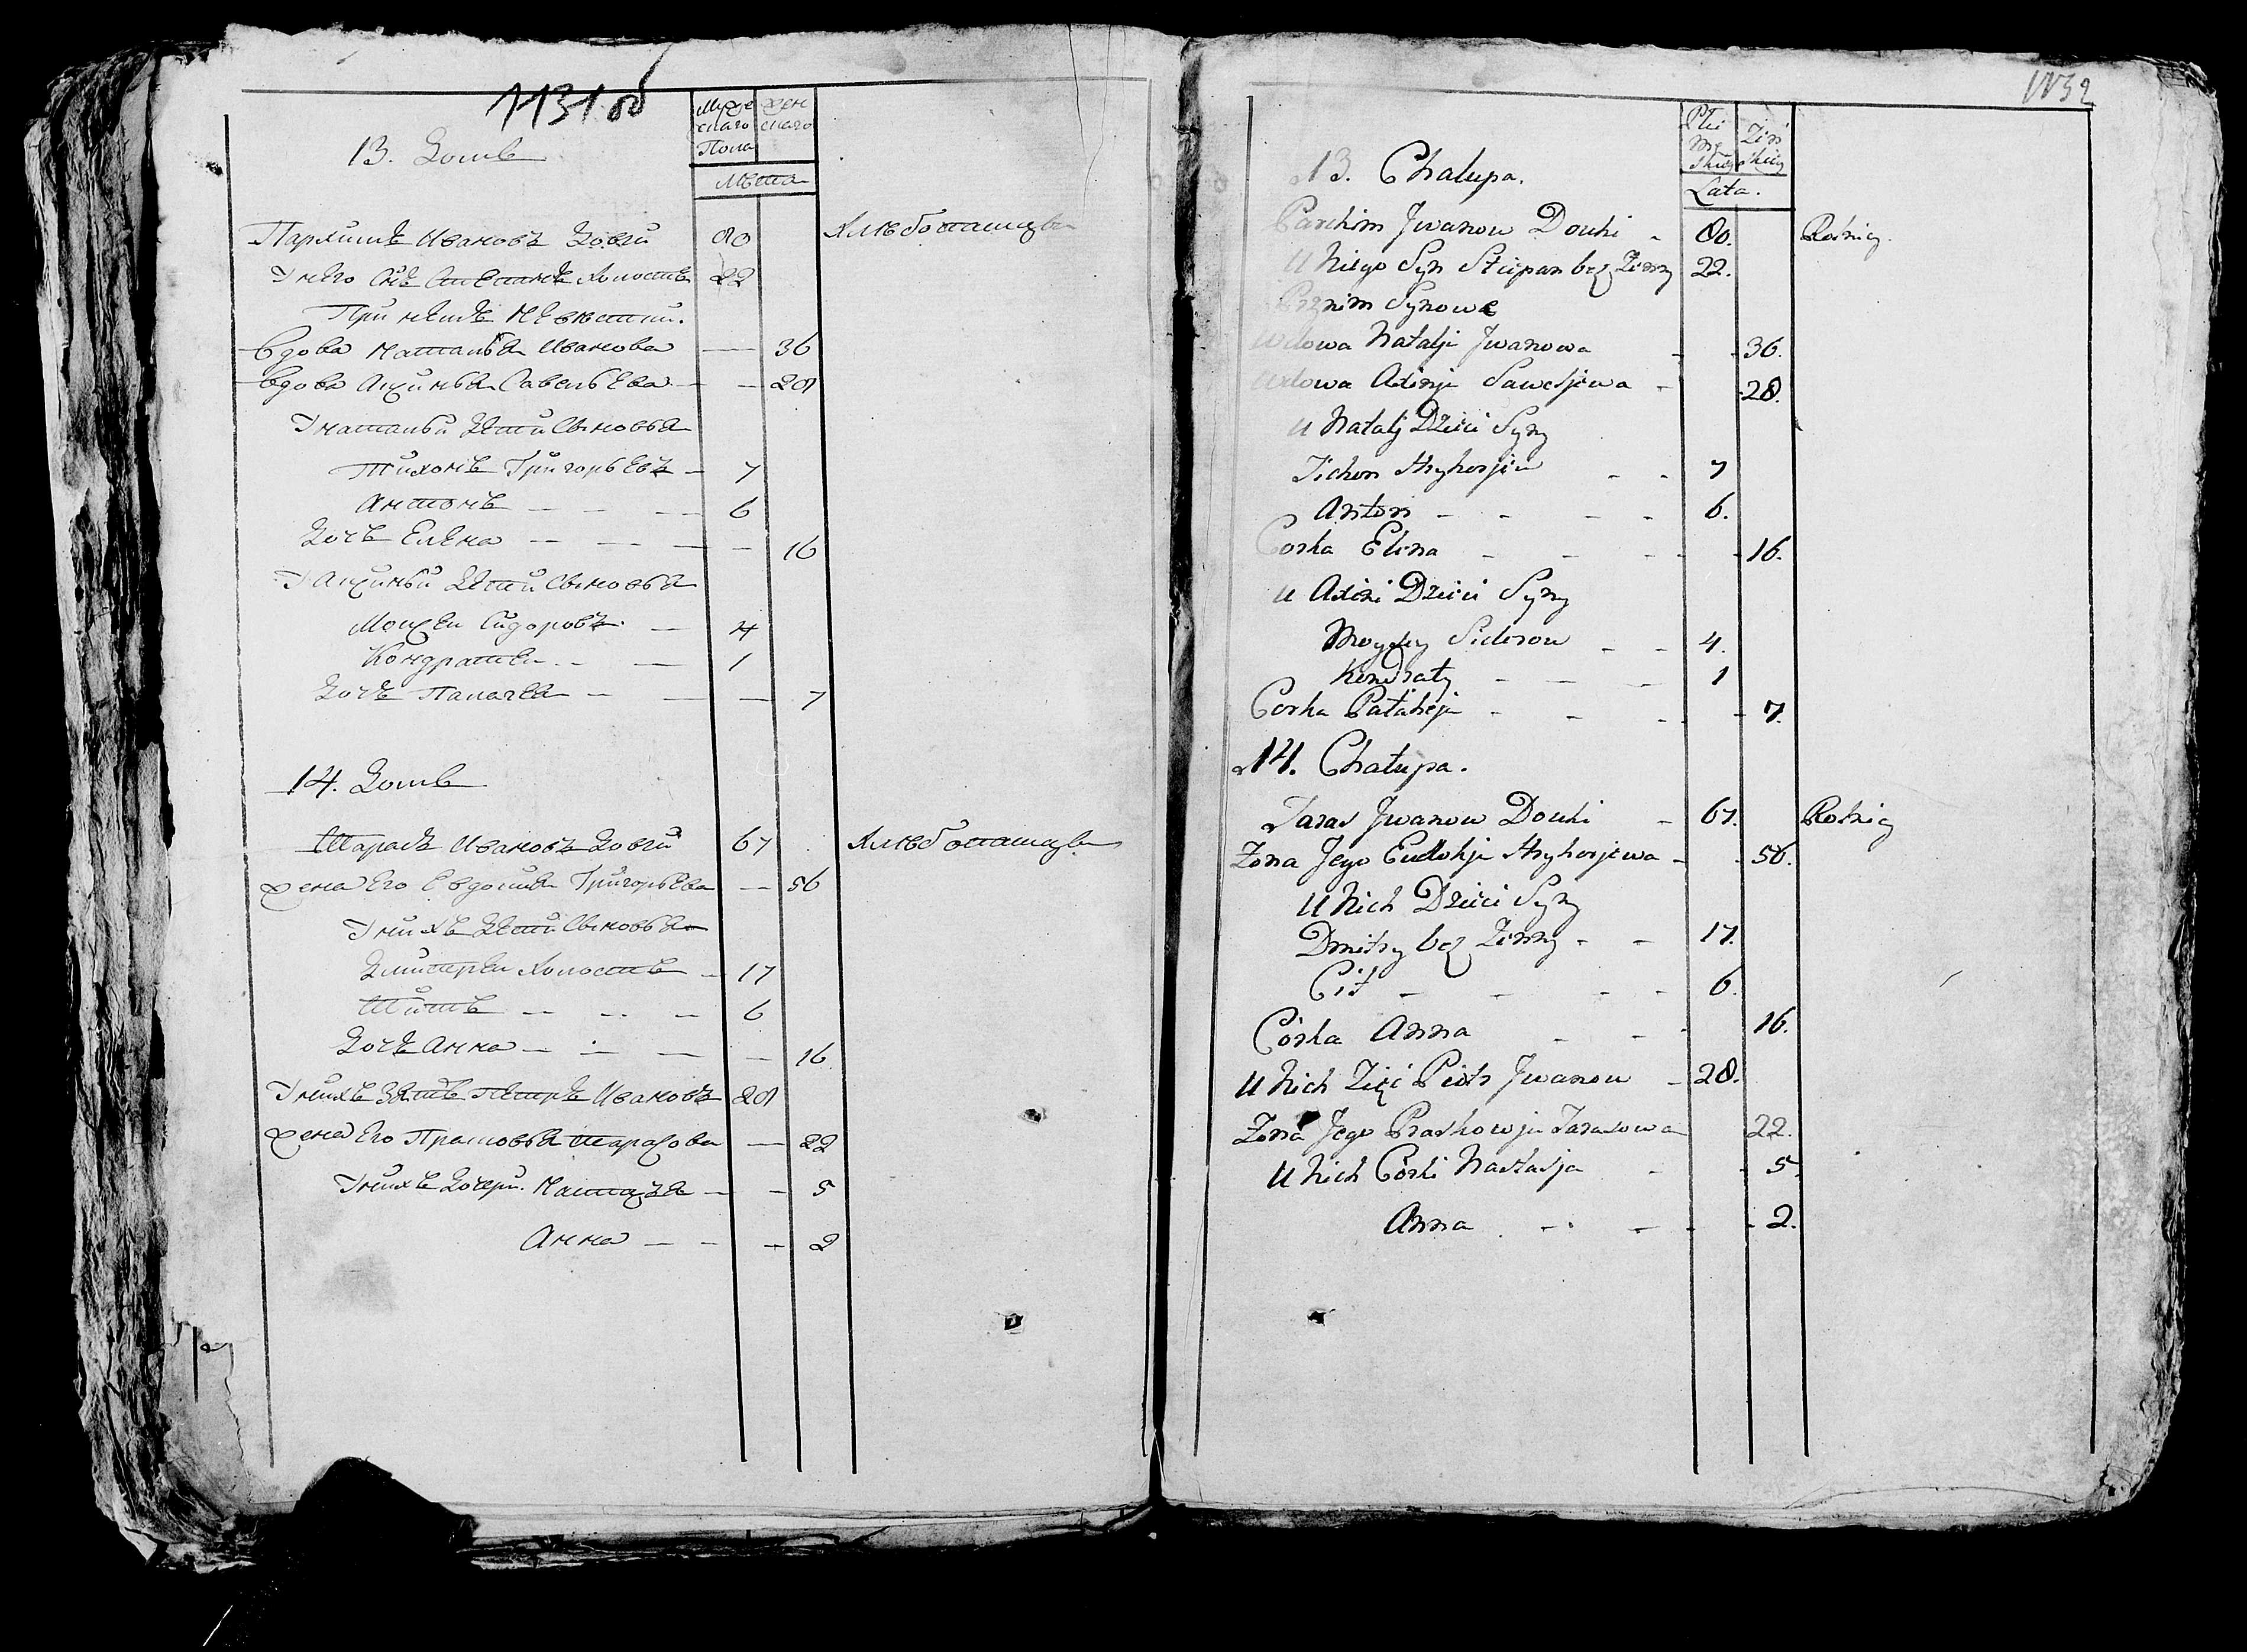 1131 об
Мужескаго Пола
женскаго
Лѣта
13. Домъ
Пархимъ Ивановъ Довги 80 Хлѣбопашецъ
У него Сынъ Степанъ Холостъ 22
При немъ Невѣстки.
Вдова Наталья Иванова — 36
Вдова Аксинья Савельева — — 28
У Натальи Дѣти Сыновья
Тихонъ Григорьевъ — 7
Антонъ — — — — 6
Дочь Елена — — — — 16
У Аксиньи Дѣти Сыновья
Моисей Сидоровъ — 4
Кондратей — — 1
Дочь Палагея — — — 7
14. Домъ
Тарасъ Ивановъ Довги 67 Хлѣбопашецъ
Жена Его Евдокия Григорьева — 56
У нихъ Дѣти Сыновья
Дмитрей Холостъ — 17
Титъ — — — 6
Дочь Анна — — — — 16
У нихъ Зять Петръ Ивановъ 28
Жена Его Прасковья Тарасова — 22
У нихъ Дочери Настасья — — 5
Анна — — — 2
1132
Płci
Męskiej
Żeńskiej
Lata.
13. Chałupa.
Parchim Jwanow Douhi - 80. Rolnicy.
U Niego Syn Stepan bez Żenny 22.
Przy nim Synowe
Wdowa Natalja Jwanowa - - 36.
Wdowa Axinja Saweljewa - - 28.
U Natalj Dzieci Syny
Tichon Hryhorjew - - 7
Anton - - - - 6.
Corka Elena - - - - - 16.
U Axini Dzieci Syny
Moysey Siderow - - 4.
Kondraty - - - 1
Corka Pałaheja - - - - 7.
14. Chałupa.
Taras Jwanow Douhi - 67. Rolnicy
Zona Jego Eudokja Hryhorjewa - - 56.
U Nich Dzieci Syny
Dmitry bez Żenny - - 17.
Cit - - - - 6.
Córka Anna - - - 16.
U Nich Zięć Piotr Jwanow - 28.
Zona Jego Praskowja Tarasowa 22.
U Nich Córki Nastasja - - 5
Anna - - - - - 2.